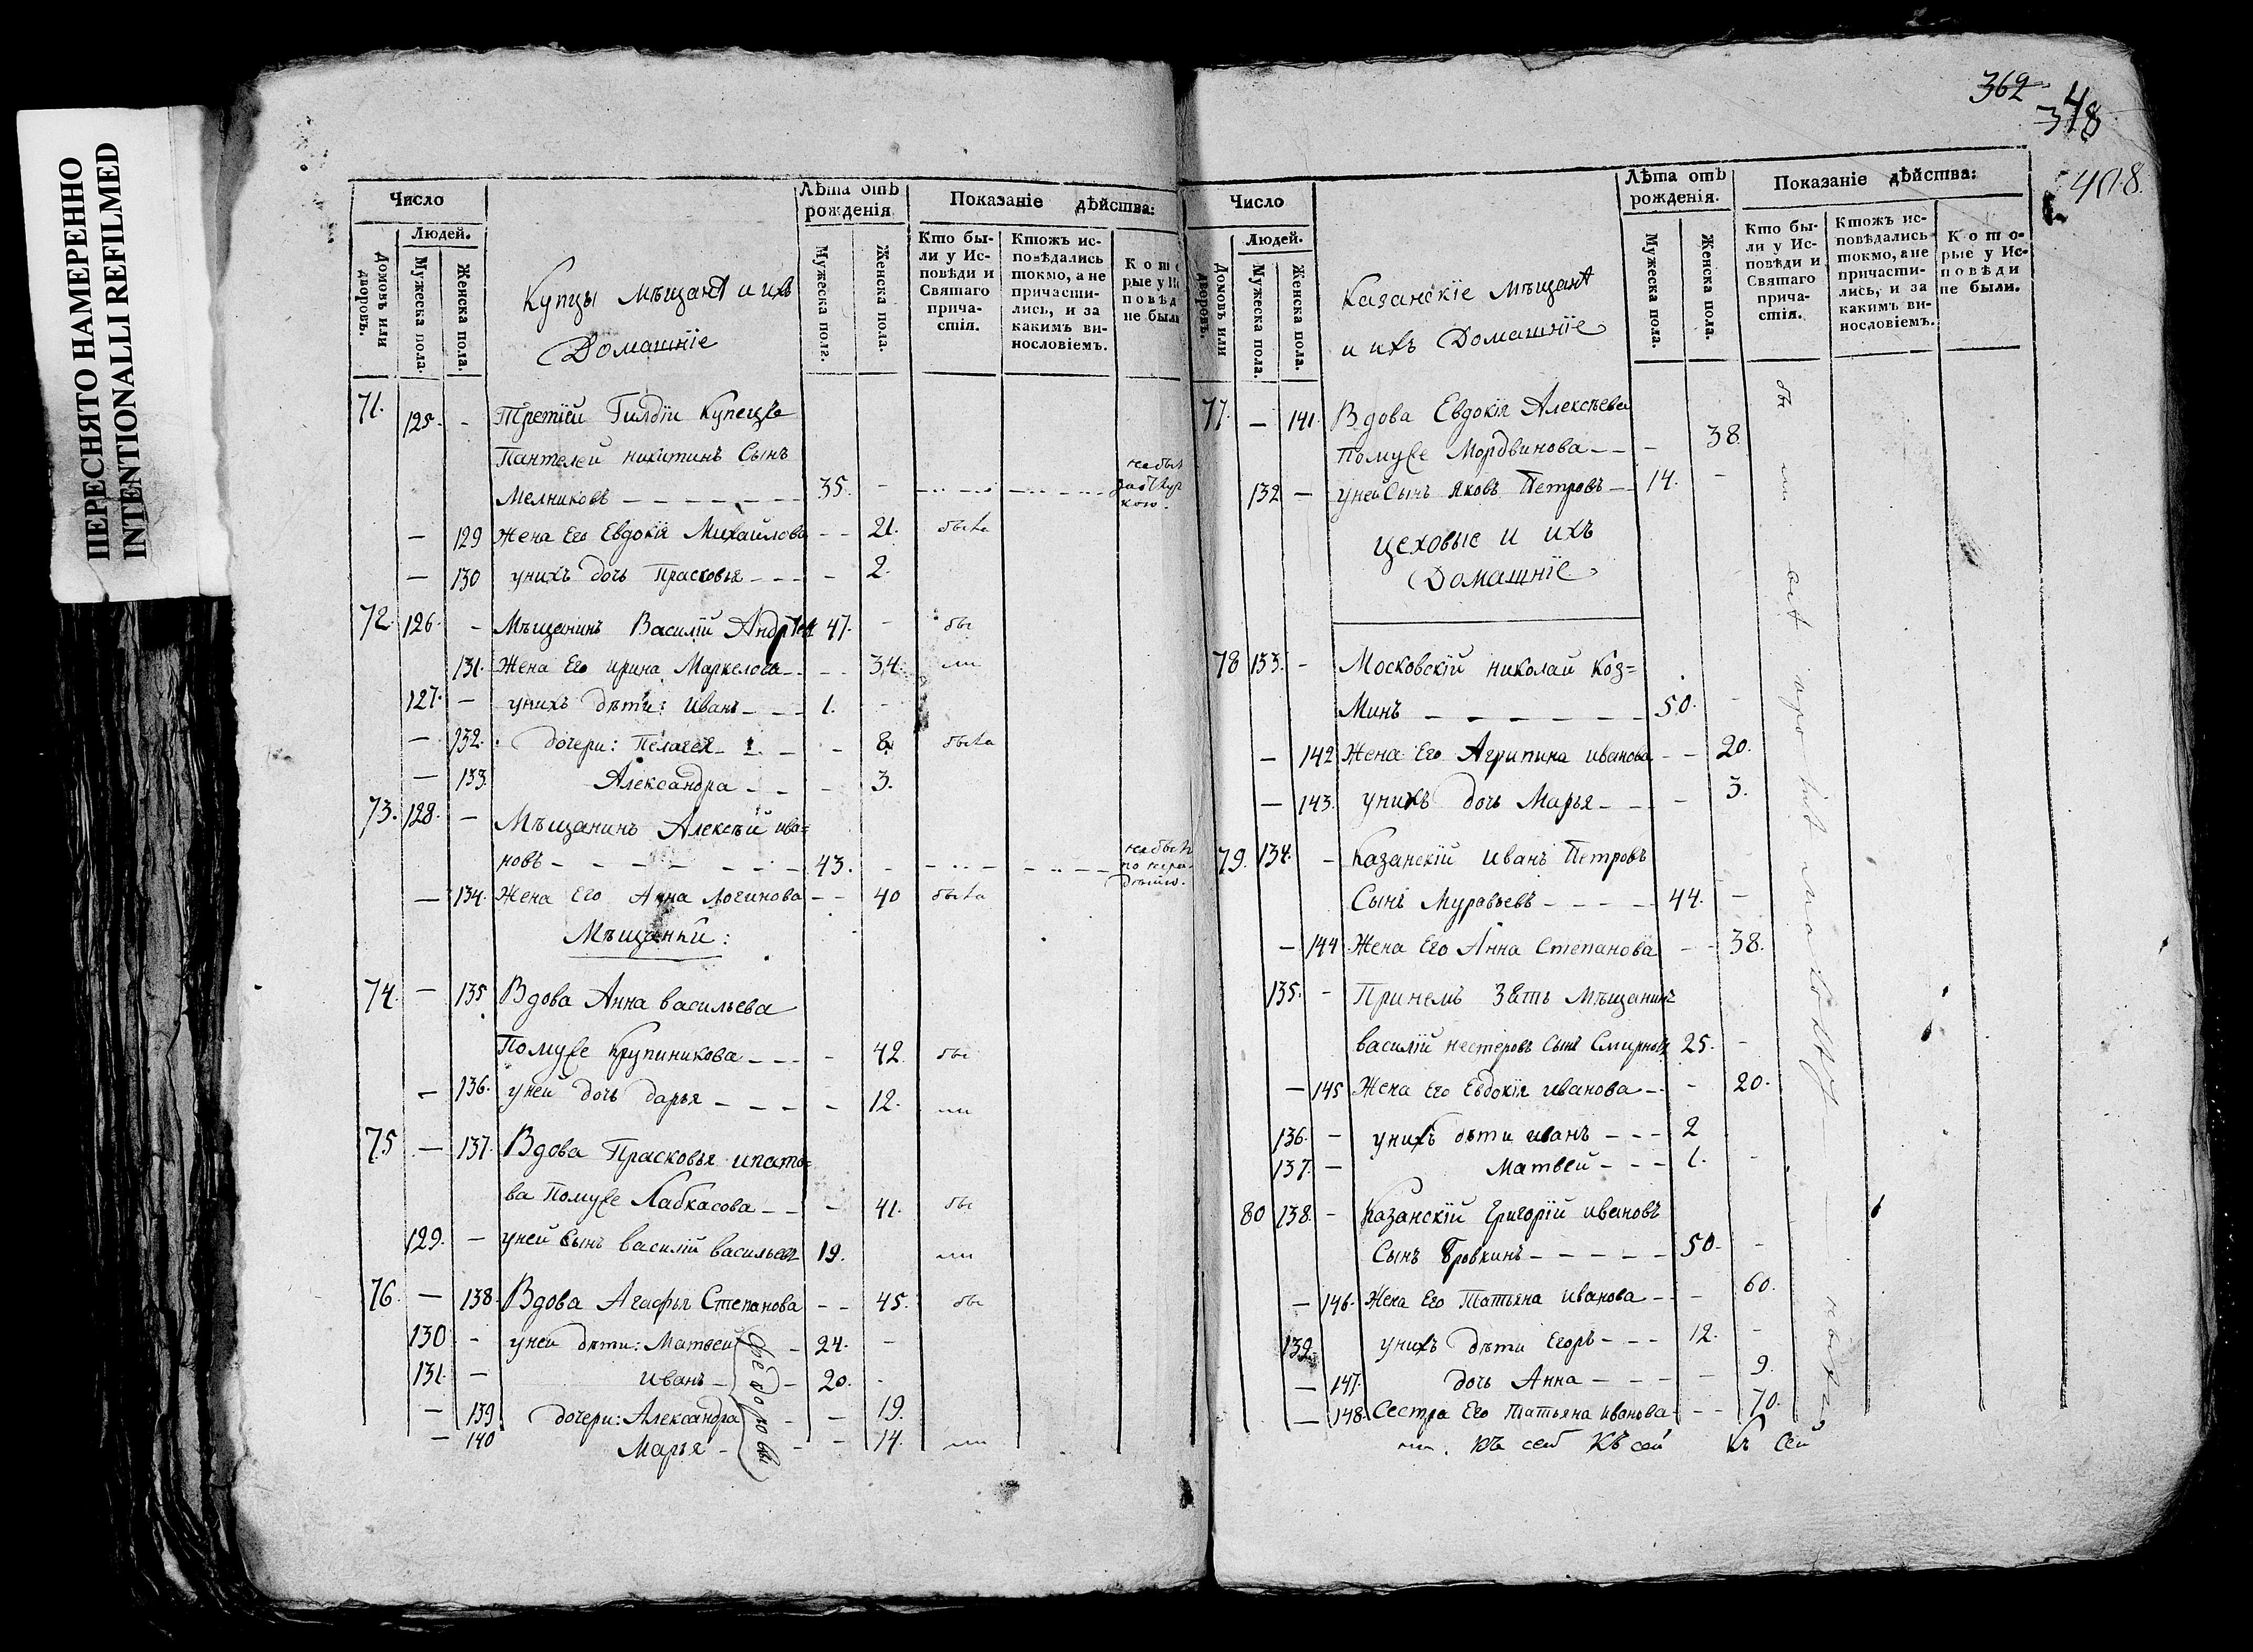 ПЕРЕСНЯТО НАМЕРЕННО
INTENTIONALLI REFILMED
Число
Людей.
Домовъ или дворовъ.
Мужеска пола.
Женска пола.
Купцы мѣщанѣ и ихъ
Домашнїе
Лѣта отъ рожденія
Мужеска пола.
Женска пола.
Показаніе дѣйства:
Кто бы-
ли у Ис-
повѣди и
Святаго
прича-
стія.
Ктожъ ис-
повѣдались
токмо, а не
причасти-
лись, и за
какимъ ви-
нословіемъ.
71. 125. - Третїей Гилдїи Купецъ
Пантелеи никитинъ Сынъ
Мелниковъ - - - - - - - 35. -
— 129 Жена Его Евдокїя Михаилова - - 21. была
— 130 унихъ дочь Прасковья - - - - 2.
72. 126. - Мѣщанинъ Василїй Андрѣев 47. - бы
131. Жена Его ирина Маркелова - - - 34. ли
127. — унихъ дѣти: Иванъ - - - 1. -
— 132. дочери: Пелагея - - - - 8. была
— 133. Александра - - - 3.
73. 128. — Мѣщанинъ Алексѣй ива=
новъ - - - - - - - - 43. -
— 134. Жена Его Анна логинова - - 40 была
Мѣщанки:
74. — 135 Вдова Анна васильева
Помуже Крупиникова - - - - 42. бы
— 136. уней дочь дарья - - - - 12. ли
75 — 137. Вдова Прасковья ипато=
ва Помуже Лабкасова - - - 41. бы
129. — уней сынъ василїй васильевъ 19. ли
76. — 138. Вдова Агафья Степанова - - 45. бы
130 - уней дѣти: Матвей - 24. -
131. — иванъ - - 20. -
— 139 дочери: Александра - - 19.
— 140 Марья - - - 14. ли
Федоровы
362
348
408.
Число
Людей.
Домовъ или дворовъ.
Мужеска пола.
Женска пола.
Казанскїе Мѣщанѣ
и ихъ Домашнїе
Лѣта отъ рожденія.
Мужеска пола.
Женска пола.
Показаніе дѣйства:
Кто бы-
ли у Ис-
повѣди и
Святаго
прича-
стія.
Ктожъ ис-
повѣдались
токмо, а не
причасти-
лись, и за
какимъ ви-
нословіемъ.
Кото-
рые у Ис-
повѣди
не были.
77. — 141. Вдова Евдокїя Алексѣева
Помуже Мордвинова - - - 38.
132 — уней Сынъ Яковъ Петровъ - 14. -
Цеховые и ихъ
Домашнїе
78 133. - Московскїй николай Коз=
Минъ - - - - - - - 50. -
— 142 Жена Его Агрипина иванова - - 20.
— 143. унихъ дочь Марья - - - 3.
79. 134. - Казанскїй Иванъ Петровъ
Сынъ Муравьевъ - - - - 44. —
— 144. Жена Его Анна Степанова - - 38.
135. - Принемъ Зять Мѣщанинъ
василїй нестеровъ Сынъ Смирновъ 25. -
— 145 Жена Его Евдокїя иванова - - 20.
136. - унихъ дѣти иванъ - - - 2
137. — Матвей - - - 1. -
80 138. - Казанскїй Григорїй ивановъ
Сынъ Бровкинъ - - - - - 50. -
— 146. Жена Его Татьяна иванова - - 60.
139. унихъ дѣти Егоръ - - - 12. -
— 147. дочь Анна - - - - 9.
— 148. Сестра Его Татьяна иванова - - 70.